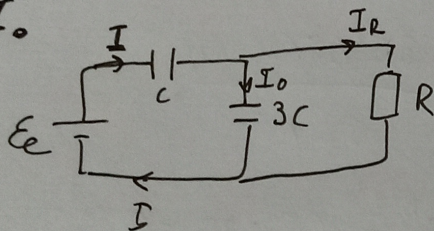 I.
I
I_R
C
I_0
3C
R
ℰ_e
I